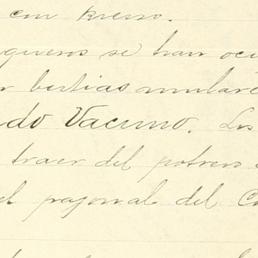 con
queros se han ocu
bestias mulare
do Vacuno. Los
traer del potrero
el pajonal del C